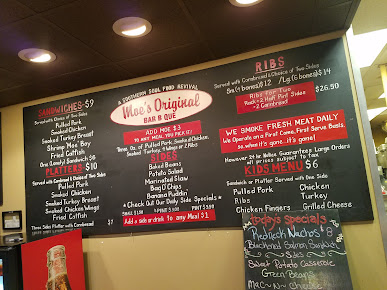 SANDWICHES-$9
Served with Choice of Two Sides
Pulled Pork
Smoked Chicken
Smoked Turkey Breast
Shrimp "Moe" Boy
Fried Catfish
One (Lonely) Sandwich $6
PLATTERS $10
Served with Cornbread & Choice of Two Sides
Pulled Pork
Smoked Chicken
Smoked Turkey Breast
Smoked Chicken Wings
Fried Catfish
Three Sides Platter with Cornbread $7
A SOUTHERN SOUL FOOD REVIVAL
Moe's Original
BAR B QUE
ADD MOE $3
TO ANY MEAL YOU PICK IT!
Three Oz. of Pulled Pork, Smoked Chicken,
Smoked Turkey, 4 Wings or 2 Ribs
SIDES
Baked Beans
Potato Salad
Marinated Slaw
Bag O' Chips
Banana Puddin'
* Check Out Our Daily Side Specials *
Add a side or drink to any Meal $1
RIBS
Served with Cornbread & Choice of Two Sides
Sm (6 bones) $12 / Lg (8 bones) $14
Ribs For Two
Rack + 2 Half Pint Sides
+ 2 Cornbread
$26.90
WE SMOKE FRESH MEAT DAILY
We Operate on a First Come, First Serve Basis.
So when it's gone... it's gone!
However 24 hr. Notice Guarantees Large Orders
all prices subject to tax
KIDS MENU $6
Sandwich or Platter Served with One Side
Pulled Pork
Ribs
Chicken Fingers
Chicken
Turkey
Grilled Cheese
Today's Specials
Redneck Nachos $8
Blackened Salmon Sandwich
Sides
Sweet Potato Casserole
Green Beans
Mac-N-Cheese